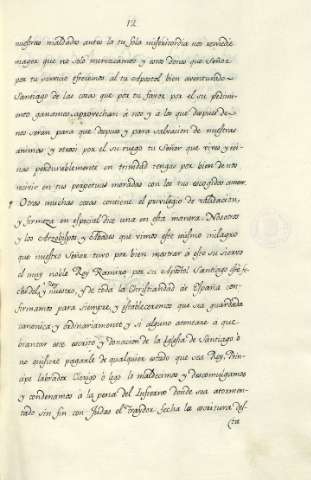 12
nuestras maldades antes la tu sola misericordia nos remedie
magor que no solo merezcamos y estos dones que Señor
por tu servicio ofrecimos al tu Apostol bien aventurado
Santiago de las cosas que por tu favor por el su pedimi-
ento ganamos, aprovechan á nos y á los que despues de
nos seran para que despues y para salvacion de nuestras
animas y otrosi por el su ruego tu Señor que vives y rei-
nas perdurablemente en trinidad tengas por bien de nos
recivir en tus perpetuas moradas con los tus escogidos amen.
Otras muchas cosas contiene el privilegio de validacion,
y firmeza en especial dice una en esta manera: Nosotros
y los Arzobispos y Abades que vimos este mismo milagro
que nuestro Señor tuvo por bien mostrar á este su siervo
el muy noble Rey Ramiro por su Apostol Santiago este fe-
cho del Rey nuestro, y de toda la Christiandad de España con-
firmamos para siempre y establecemos que sea guardada
canonica y ordinariamente y si alguno atentare a que-
brantar este escrito y donacion de la Iglesia de Santiago ó
no quisiere pagarle de qualquier estado que sea Rey, Prin-
cipe labrador Clerigo ó lego lo maldecimos y descomulgamos
y condenamos á la pena del Infierno donde sea atormen-
tado sin fin con Judas el traydor, fecha la escritura des-
ta